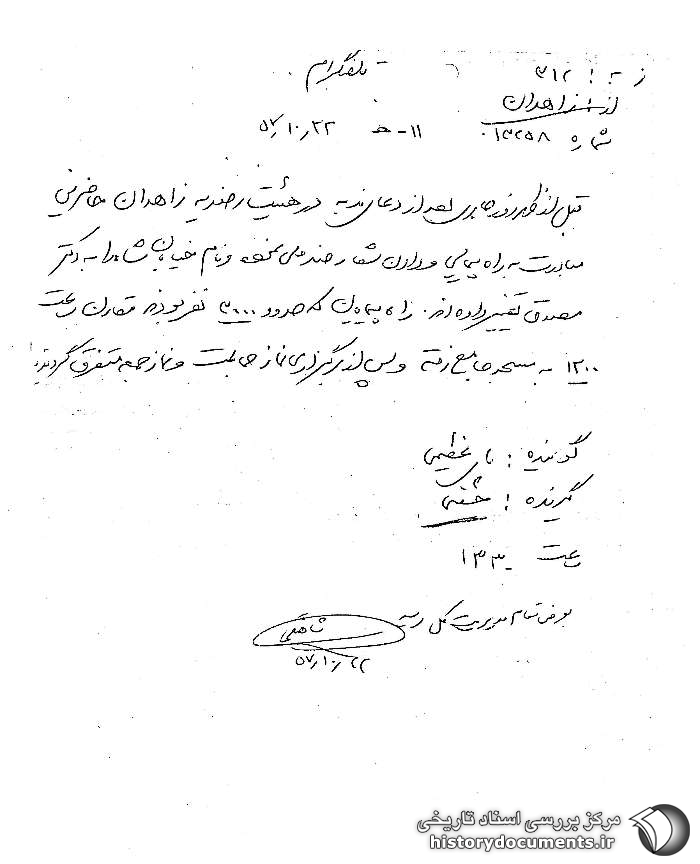 تلفگرام
به: ۳۱۲
از: زاهدان
شماره ۱۳۲۵۸ ۱۱-هـ ۵۷/۱۰/۲۲
قبل از ظهر روز جاری بعد از دعای ندبه در هیئت زاهدان حاضرین
مبادرت به راه پیمایی و دادن شعار ضد ملی نموده و نام خیابان شاه را به دکتر
مصدق تغییر داده‌اند. راه پیمایان که حدود ۳۰۰۰ نفر بودند مقارن ساعت
۱۲۰۰ به مسجد جامع رفته و پس از برگزاری نماز جماعت و نماز جمعه متفرق گردیدند
گوینده:
گیرنده:
ساعت ۱۳۳۰
بعرض مقام مدیریت کل رسید
۵۷/۱۰/۲۲
مرکز بررسی اسناد تاریخی
historydocuments.ir